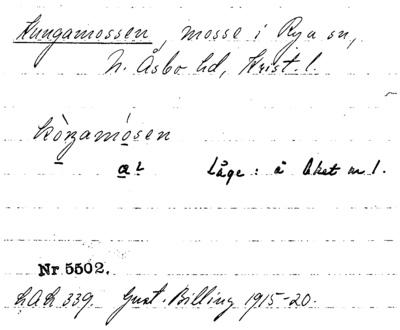 Kungamossen, mosse i Rya sn,
N. Åsbo hd, Krist. l.
a
Läge: å Åket nr 1.
Nr 5502.
LAL 339. Gust. Billing 1915-20.